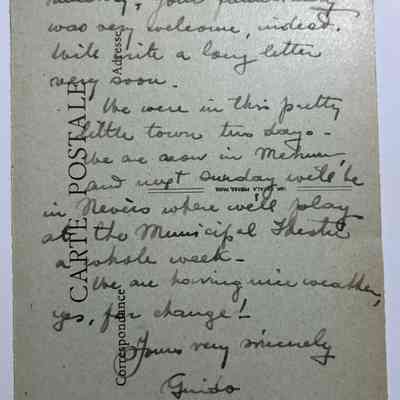 was very welcome, indeed.
Will write a long letter
very soon.
We were in this pretty
little town two days -
We are now in Mehun
and next Sunday we'll be
in Nevers where we'll play
at the Municipal Theatre
a whole week -
We are having nice weather,
yes, for change!
Yours very sincerely
Guido
CARTE POSTALE
Correspondance
Adresse